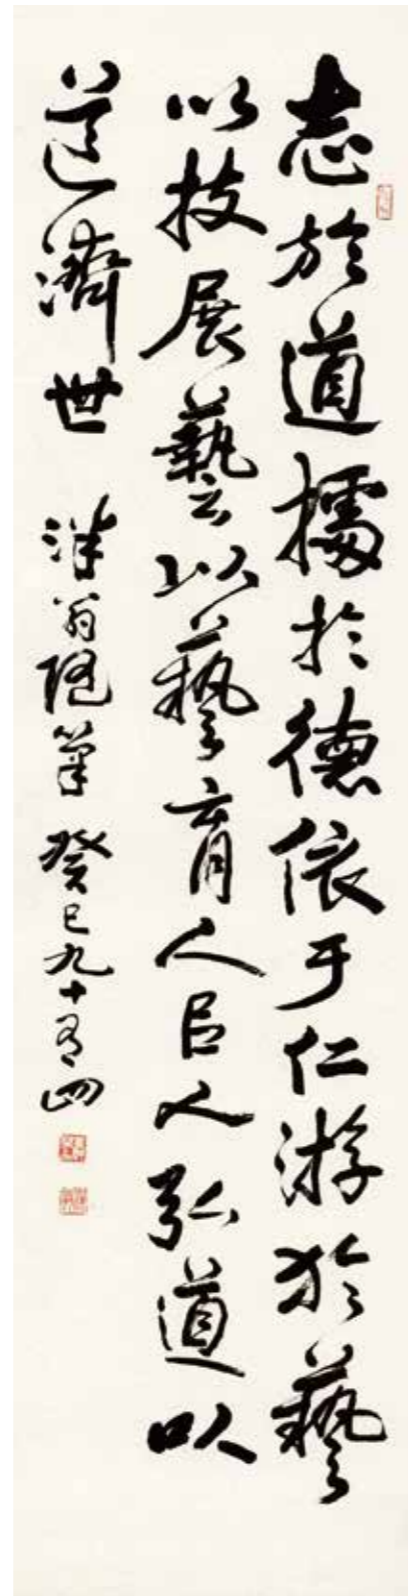 志於道據於德依于仁游於藝
以技展藝以藝育人㠯人弘道以
道濟世 泮翁随筆 癸巳九十有四